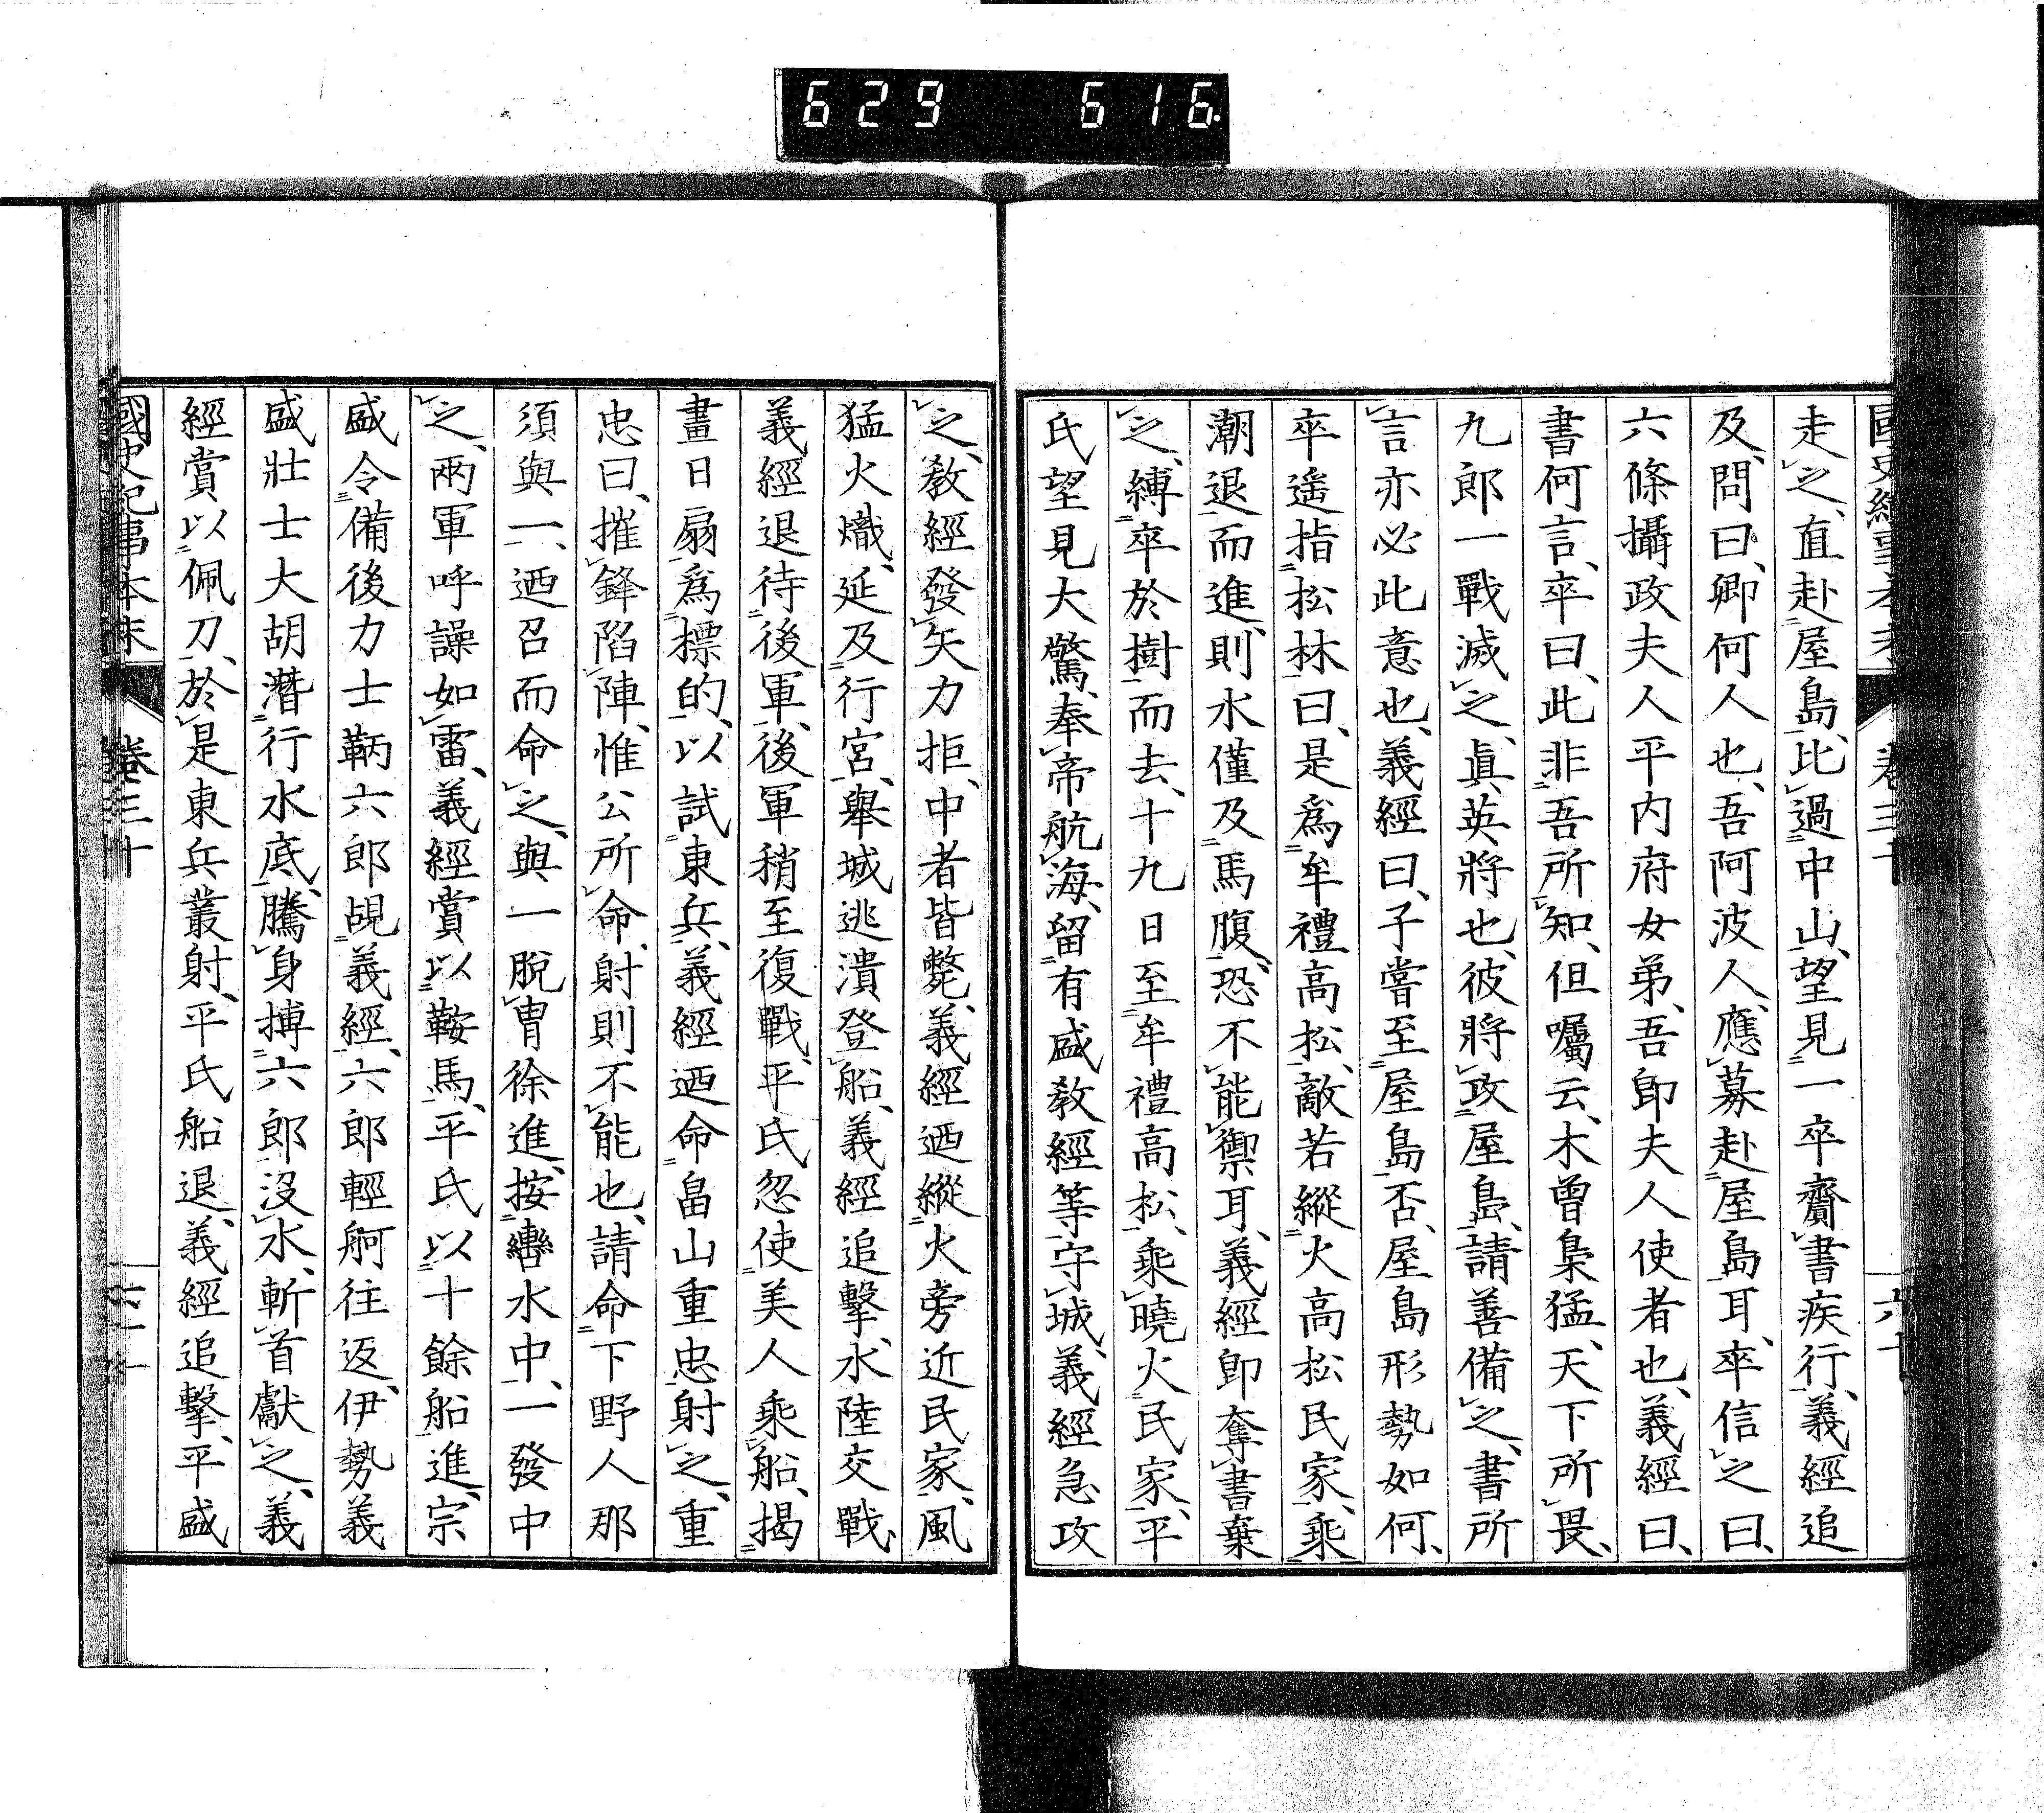 629 616
走之、直赴屋島、比過中山、望見一卒齎書疾行、義經追
及、問曰、卿何人也、吾阿波人、應募赴屋島耳、卒信之曰、
六條攝政夫人平内府女弟、吾卽夫人使者也、義經曰、
書何言、卒曰、此非吾所知、但囑云、木曾梟猛、天下所畏、
九郎一戰滅之、眞英將也、彼將攻屋島、請善備之、書所
言亦必此意也、義經曰、子嘗至屋島否、屋島形勢如何、
卒遙指松林曰、是爲牟禮高松、敵若縱火高松民家、乘
潮退而進、則水僅及馬腹、恐不能禦耳、義經卽奪書棄
之、縛卒於樹而去、十九日至牟禮高松、乘曉火民家、平
氏望見大驚、奉帝航海、留有盛敎經等守城、義經急攻
之、敎經發矢力拒、中者皆斃、義經迺縱火旁近民家、風
猛火熾、延及行宮、舉城逃潰登船、義經追擊、水陸交戰、
義經退待後軍、後軍稍至復戰、平氏忽使美人乘船、揭
畫日扇爲標的、以試東兵、義經迺命畠山重忠射之、重
忠曰、摧鋒陷陣、惟公所命、射則不能也、請命下野人那
須與一、迺召而命之、與一脫冑徐進、按轡水中、一發中
之、兩軍呼譟如雷、義經賞以鞍馬、平氏以十餘船進、宗
盛令備後力士鞆六郎覘義經、六郎輕舸往返、伊勢義
盛壯士大胡潛行水底、騰身搏六郎沒水、斬首獻之、義
經賞以佩刀、於是東兵叢射、平氏船退、義經追擊、平盛
國史紀事本末 卷三十